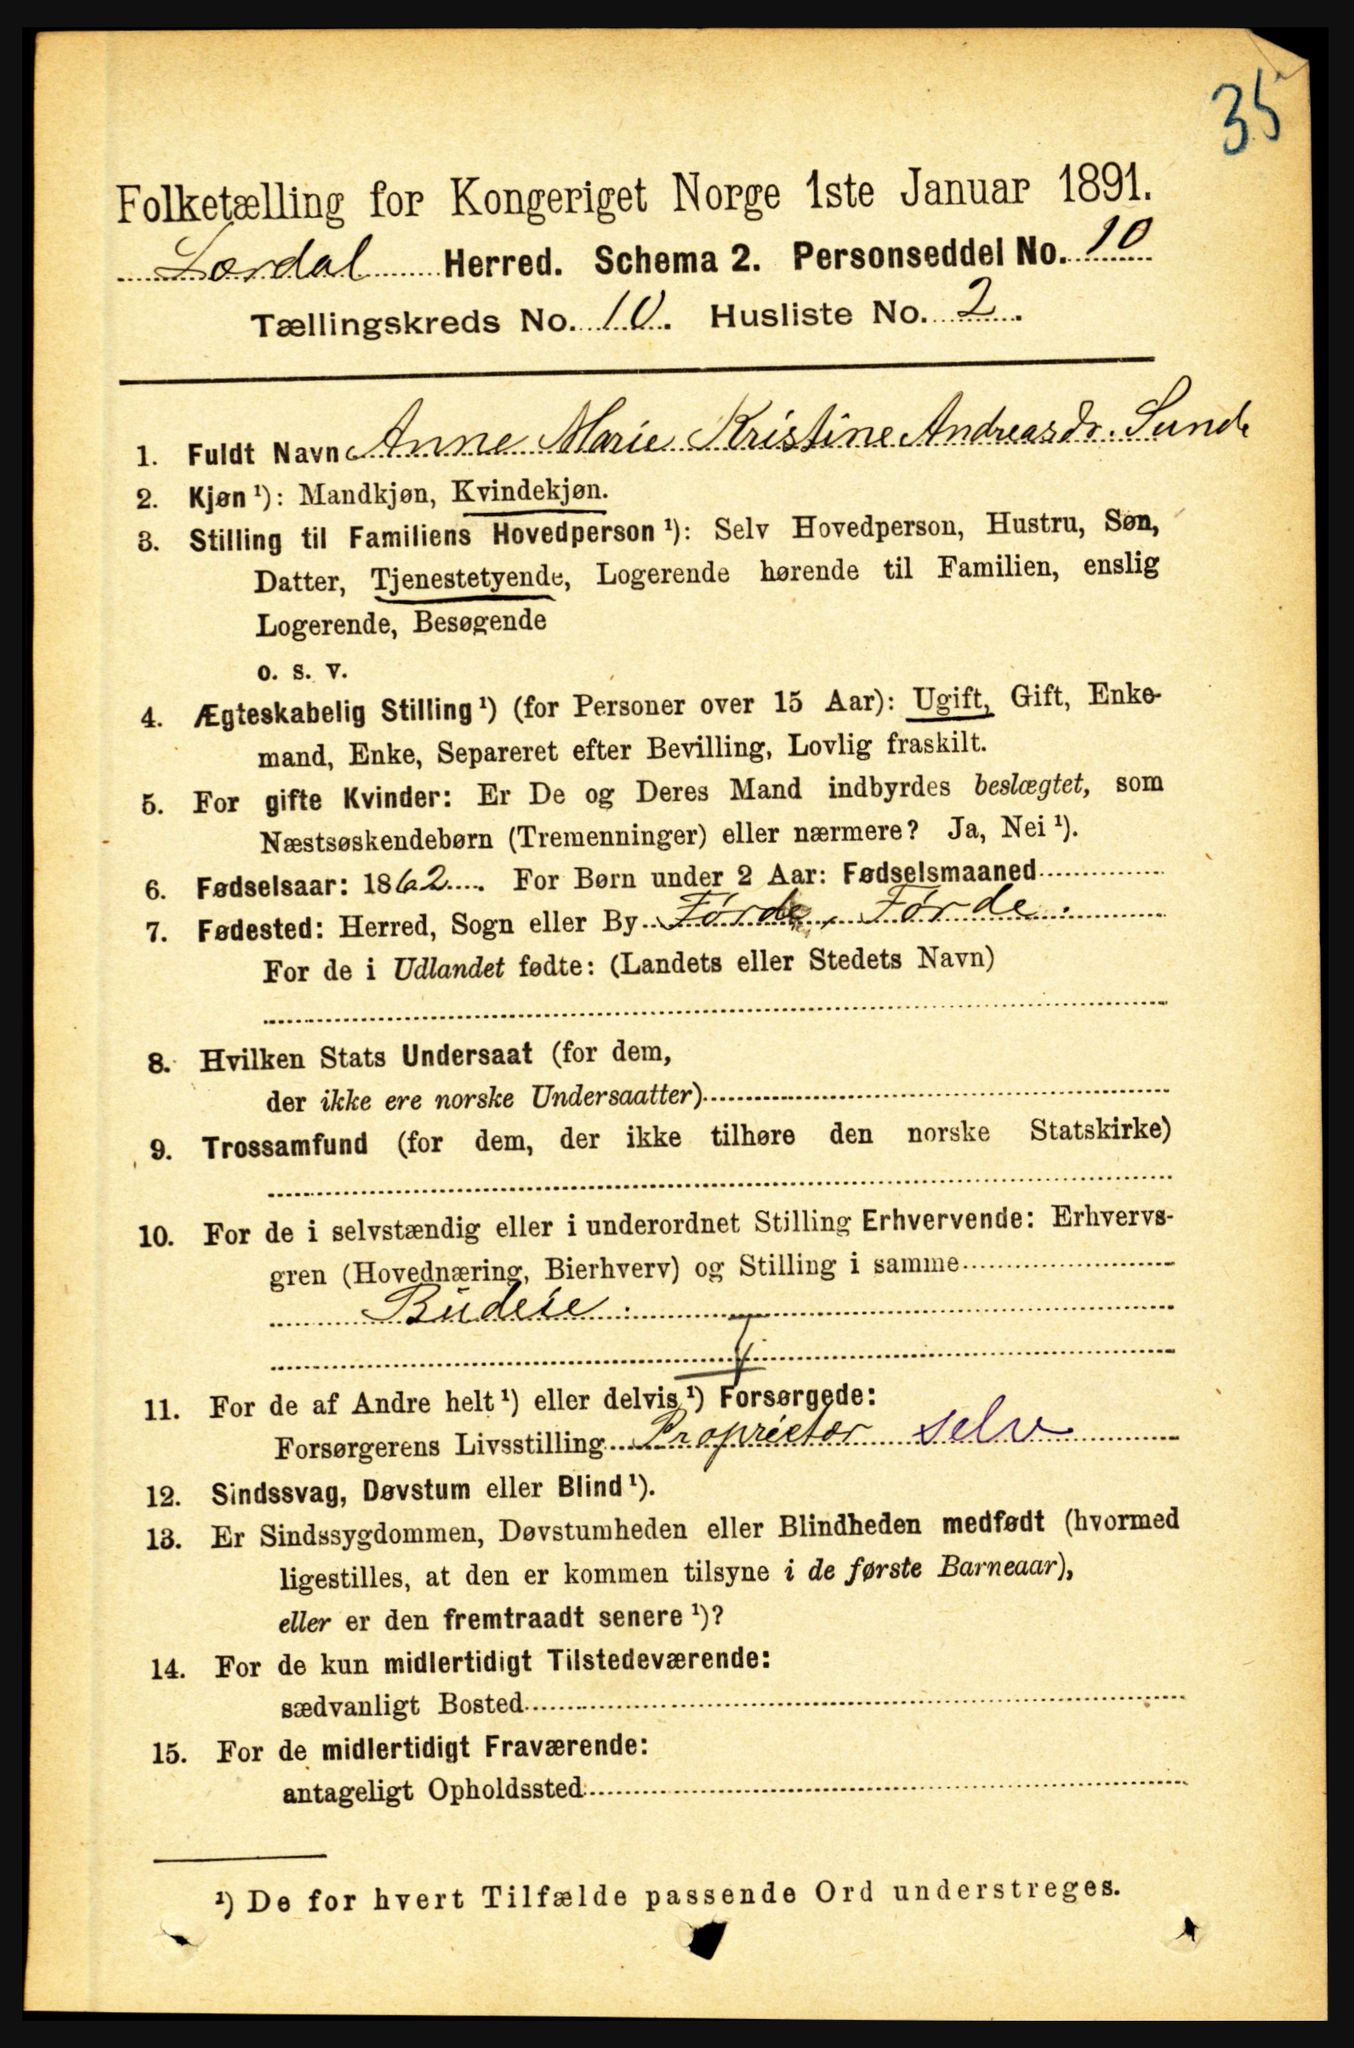 35
Folketælling for Kongeriget Norge 1ste Januar 1891.
Lærdal Herred. Schema 2. Personseddel No. 10
Tællingskreds No. 10. Husliste No. 2.
1. Fuldt Navn Anne Marie Kristine Andreasdr. Sunde
2. Kjøn ¹): Mandkjøn, Kvindekjøn.
3. Stilling til Familiens Hovedperson ¹): Selv Hovedperson, Hustru, Søn,
Datter, Tjenestetyende, Logerende hørende til Familien, enslig
Logerende, Besøgende
o. s. v.
4. Ægteskabelig Stilling ¹) (for Personer over 15 Aar): Ugift, Gift, Enke-
mand, Enke, Separeret efter Bevilling, Lovlig fraskilt.
5. For gifte Kvinder: Er De og Deres Mand indbyrdes beslægtet, som
Næstsøskendebørn (Tremenninger) eller nærmere? Ja, Nei ¹).
6. Fødselsaar: 1862. For Børn under 2 Aar: Fødselsmaaned
7. Fødested: Herred, Sogn eller By Førde, Førde.
For de i Udlandet fødte: (Landets eller Stedets Navn)
8. Hvilken Stats Undersaat (for dem,
der ikke ere norske Undersaatter)
9. Trossamfund (for dem, der ikke tilhøre den norske Statskirke)
10. For de i selvstændig eller i underordnet Stilling Erhvervende: Erhvervs-
gren (Hovednæring, Bierhverv) og Stilling i samme
Budeie.
11. For de af Andre helt ¹) eller delvis ¹) Forsørgede:
Forsørgerens Livsstilling Proprietær selv
12. Sindssvag, Døvstum eller Blind ¹).
13. Er Sindssygdommen, Døvstumheden eller Blindheden medfødt (hvormed
ligestilles, at den er kommen tilsyne i de første Barneaar),
eller er den fremtraadt senere ¹)?
14. For de kun midlertidigt Tilstedeværende:
sædvanligt Bosted
15. For de midlertidigt Fraværende:
antageligt Opholdssted
¹) De for hvert Tilfælde passende Ord understreges.